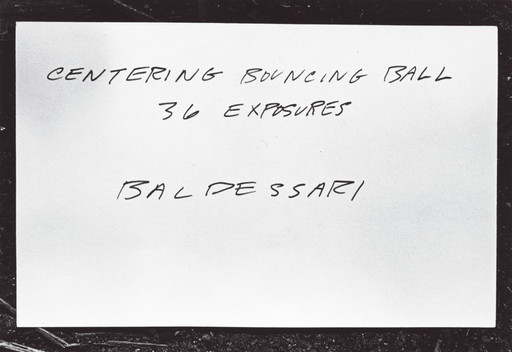 CENTERING BOUNCING BALL
36 EXPOSURES
BALDESSARI